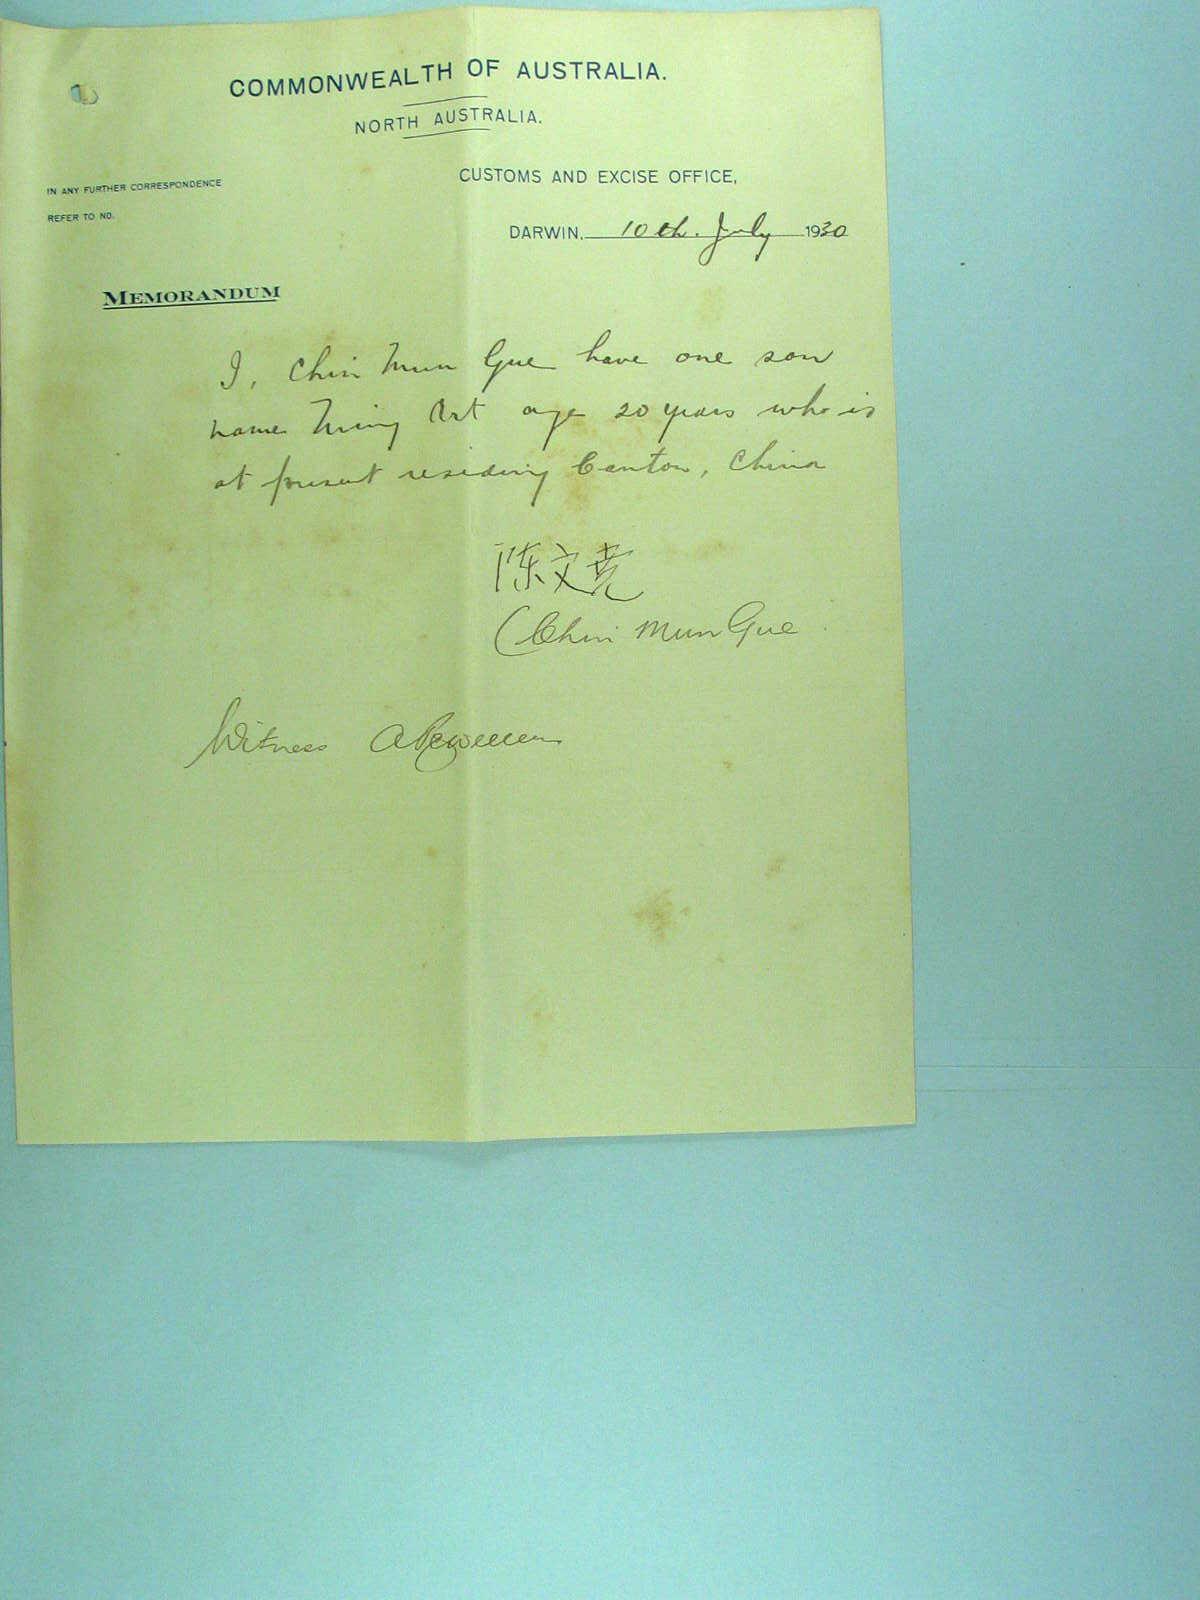 COMMONWEALTH OF AUSTRALIA.
NORTH AUSTRALIA.
IN ANY FURTHER CORRESPONDENCE
REFER TO NO.
CUSTOMS AND EXCISE OFFICE,
DARWIN, 10th. July 1930
MEMORANDUM
I, Chin Mun Gue have one son
name Ming Art age 20 years who is
at present residing Canton, China
陈文尭
(Chin Mun Gue
Witness